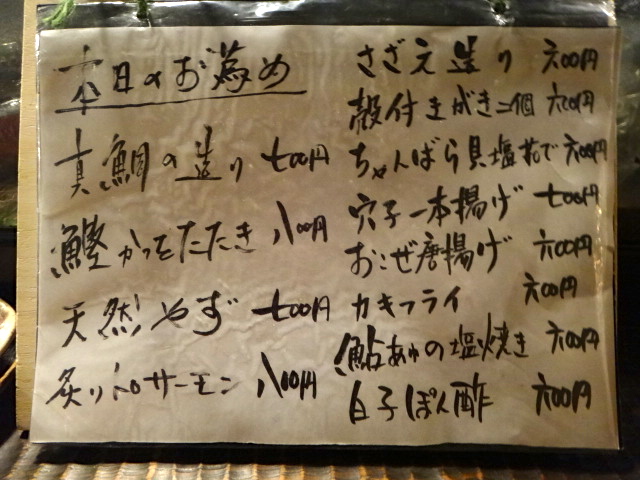 本日のお薦め
真鯛の造り 七00円
鰹かつをたたき 八00円
天然やず 七00円
炙りトロサーモン 八00円
さざえ造り 六00円
殻付きがき二個 六00円
ちゃんばら貝塩茹で 六00円
穴子一本揚げ 七00円
おこぜ唐揚げ 六00円
カキフライ 六00円
鮎あゆの塩焼き 六00円
白子ぽん酢 六00円